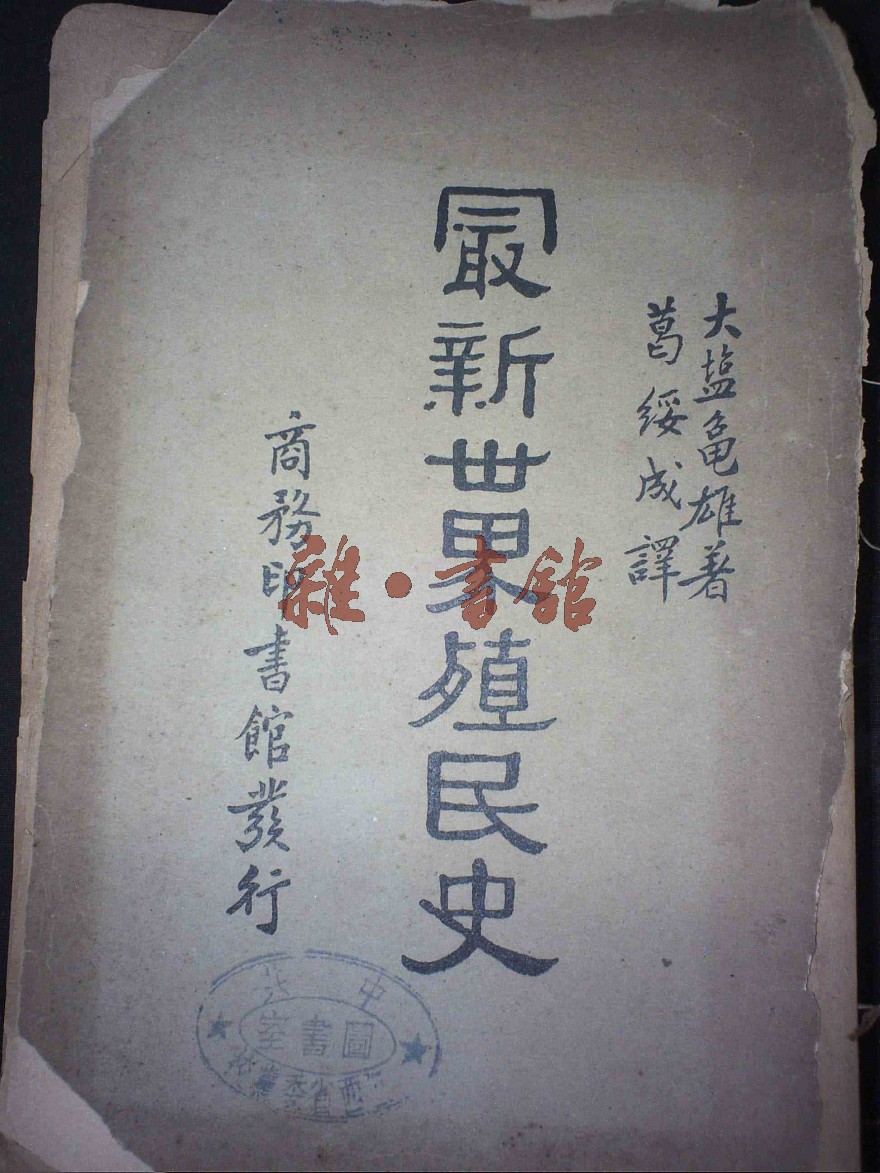 大塩龟雄著
葛綏成譯
最新世界殖民史
商務印書館發行
雜·書舘
中共
圖書室